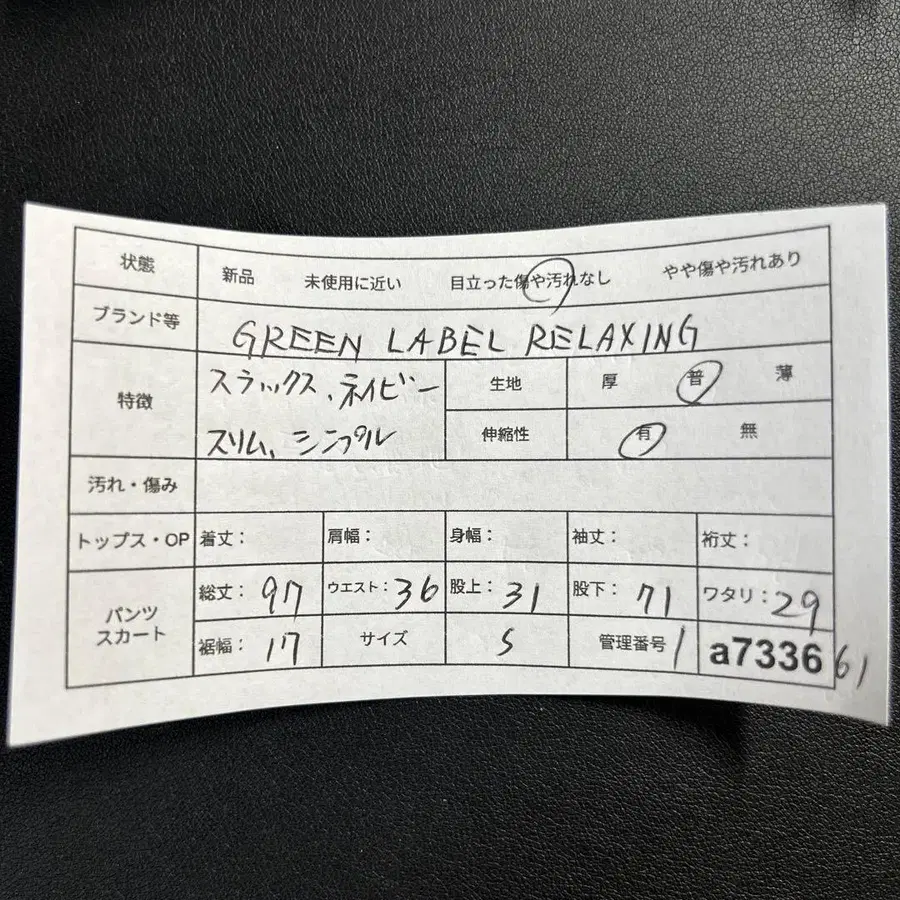 状態 新品 未使用に近い 目立った傷や汚れなし やや傷や汚れあり
ブランド等 GREEN LABEL RELAXING
特徴 スラックス、ネイビー 生地 厚 普 薄
スリム、シンプル 伸縮性 有 無
汚れ・傷み
トップス・OP 着丈: 肩幅: 身幅: 袖丈: 裄丈:
パンツ スカート 総丈: 97 ウエスト: 36 股上: 31 股下: 71 ワタリ: 29
裾幅: 17 サイズ S 管理番号 1 a7336 61